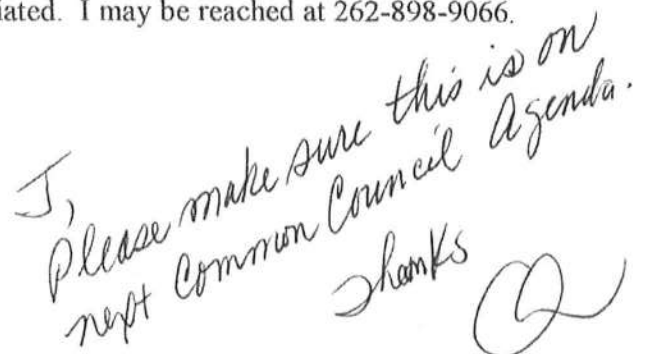 iated. I may be reached at 262-898-9066.
J,
Please make sure this is on
next Common Council Agenda.
Thanks